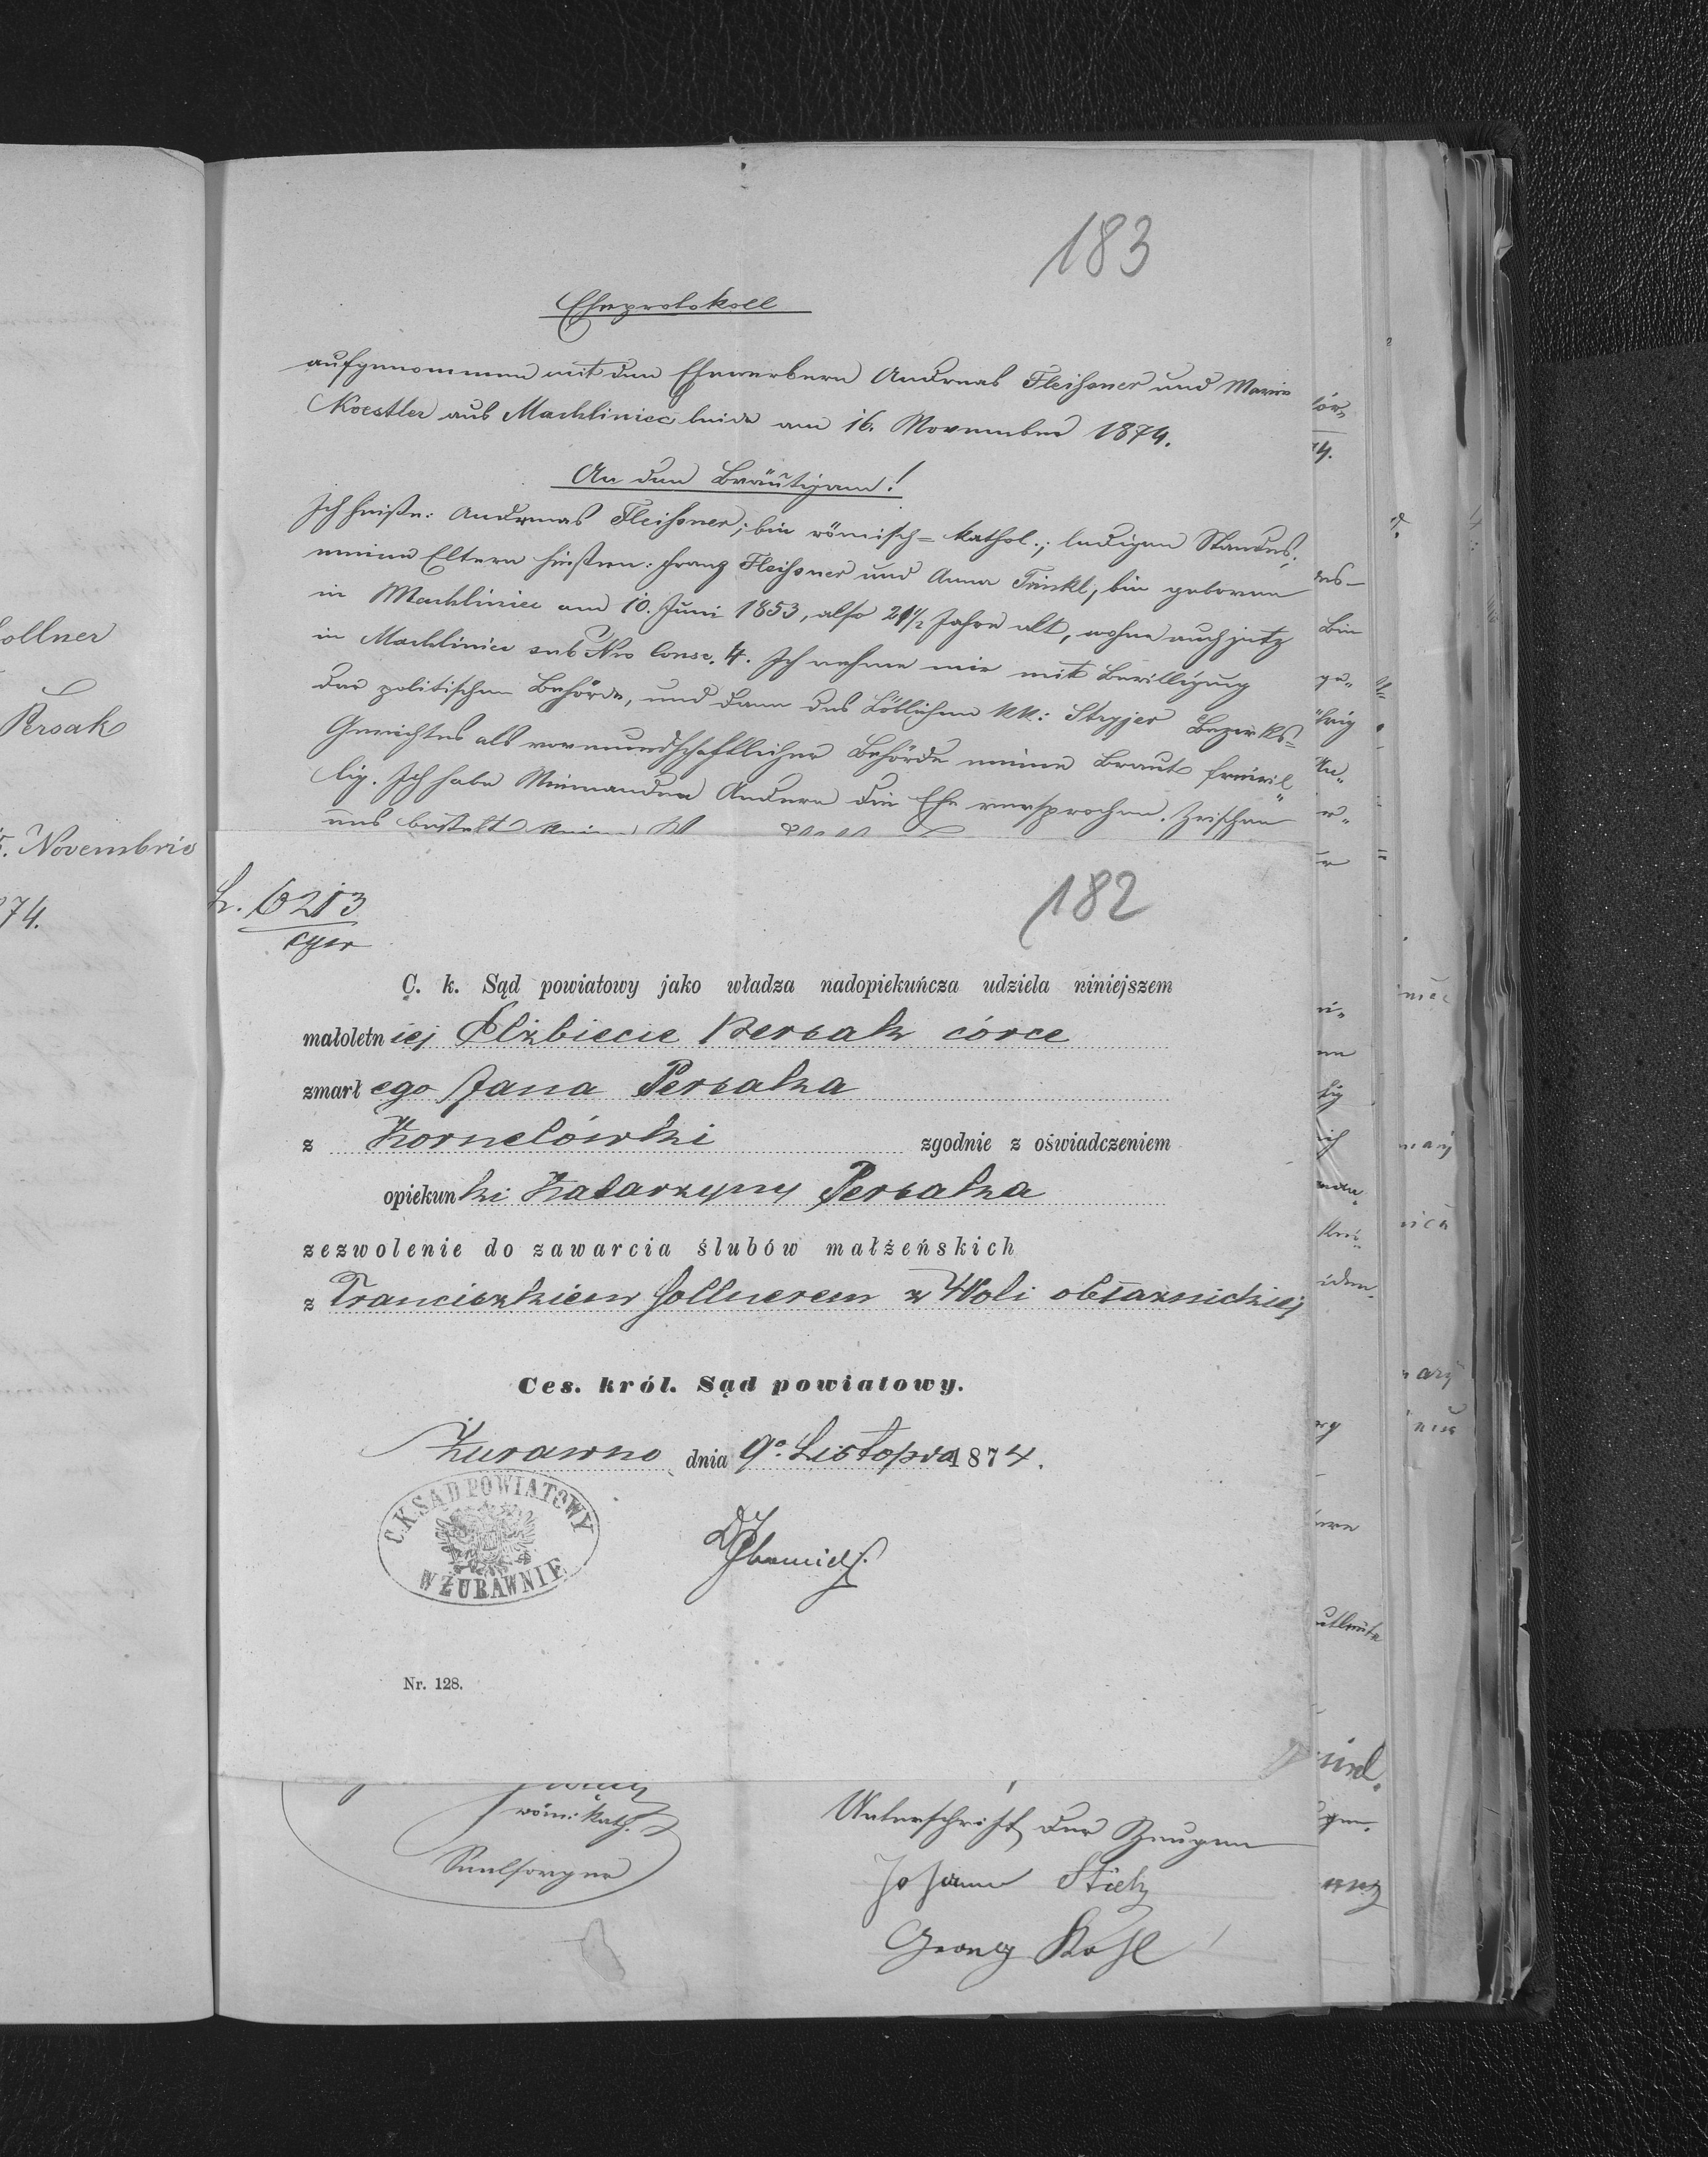 183
Eheprotokoll
aufgenommen mit den Ehewerbern Andreas Fleißner und Maria
Koestler aus Machliniec beide am 16. November 1874.
An den Bräutigam!
Ich heiße: Andreas Fleißner; bin römisch=kathol.; ledigen Standes;
meine Eltern hießen: Franz Fleißner und Anna Trinkl, bin geboren
in Machliniec am 10. Juni 1853, also 21 1/2 Jahre alt, wohne auch jetz
in Machliniec sub Nro Consc. 4. Ich nehme mir mit Bewilligung
der politischen Behörde, und dann des Löblichen KK: Stryjer Bezirks=
Gerichtes als vormundschaftlicher Behörde meine Braut freiwil
lig. Ich habe Niemanden Andern die Ehe versprochen. Zwischen
uns besteht kein
ollner
Persak
5. Novembris
874.
L. 6213
182
C. k. Sąd powiatowy jako władza nadopiekuńcza udziela niniejszem
małoletniej Elżbiecie Persak córce
zmarłego Jana Persaka
z Kornelówki zgodnie z oświadczeniem
opiekunki Katarzyny Persaka
zezwolenie do zawarcia ślubów małżeńskich
z Franciszkiem Sollnerem z Woli obłaznickiej
Ces. król. Sąd powiatowy.
Żurawno dnia 9o Listopada 1874.
C.K.SĄD POWIATOWY
W ŻURAWNIE
Nr. 128.
röm: kath.
Seelsorger
Unterschrift der Zeugen
Johann Stieh
Georg Kohl